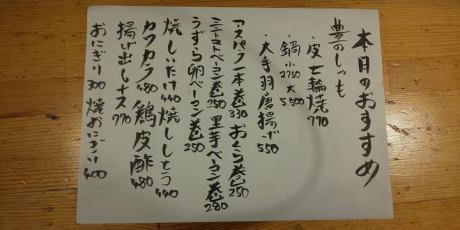 本日のおすすめ
豊のしっも
・皮七輪焼770
・鍋 小2750 大5,500
・大手羽唐揚げ550
アスパラ一本巻330 おくら巻250
ミニトマトベーコン巻250 里芋ベーコン巻280
うずら卵ベーコン巻250
焼しいたけ440 焼ししとう440
カワカラ480 鶏皮酢480
揚げ出しナス770
おにぎり300 焼おにぎり400